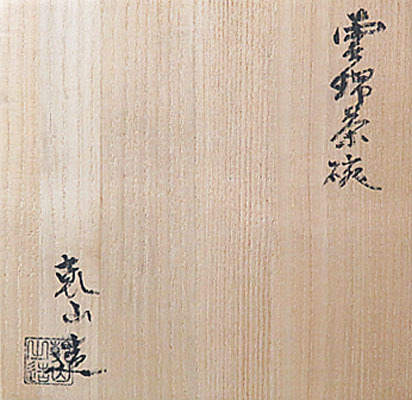 雲錦茶碗
乾山造